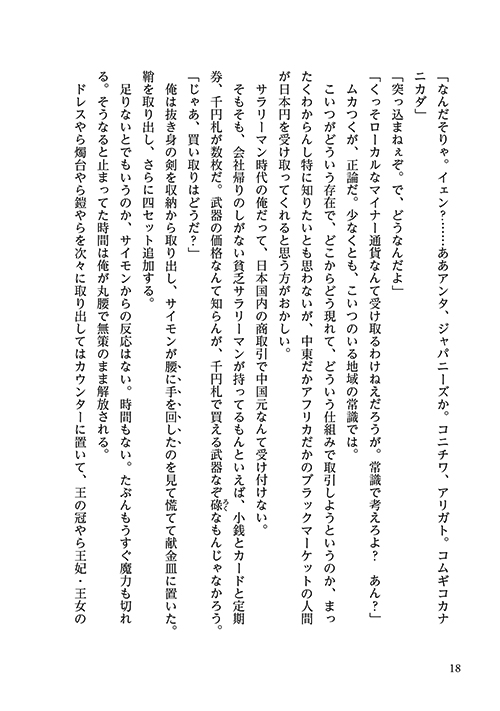 「なんだそりゃ。イェン？……ああアンタ、ジャパニーズか。コニチワ、アリガト。コムギコカナ
ニカダ」
「突っ込まねぇぞ。で、どうなんだよ」
「くっそローカルなマイナー通貨なんて受け取るわけねえだろうが。常識で考えろよ？　あん？」
ムカつくが、正論だ。少なくとも、こいつのいる地域の常識では。
こいつがどういう存在で、どこからどう現れて、どういう仕組みで取引しようというのか、まっ
たくわからんし特に知りたいとも思わないが、中東だかアフリカだかのブラックマーケットの人間
が日本円を受け取ってくれると思う方がおかしい。
サラリーマン時代の俺だって、日本国内の商取引で中国元なんて受け付けない。
そもそも、会社帰りのしがない貧乏サラリーマンが持ってるもんといえば、小銭とカードと定期
券、千円札が数枚だ。武器の価格なんて知らんが、千円札で買える武器なぞ碌なもんじゃなかろう。
ろく
「じゃあ、買い取りはどうだ？」
俺は抜き身の剣を収納から取り出し、サイモンが腰に手を回したのを見て慌てて献金皿に置いた。
鞘を取り出し、さらに四セット追加する。
足りないとでもいうのか、サイモンからの反応はない。時間もない。たぶんもうすぐ魔力も切れ
る。そうなると止まってた時間は俺が丸腰で無策のまま解放される。
ドレスやら燭台やら鎧やらを次々に取り出してはカウンターに置いて、王の冠やら王妃・王女の
18